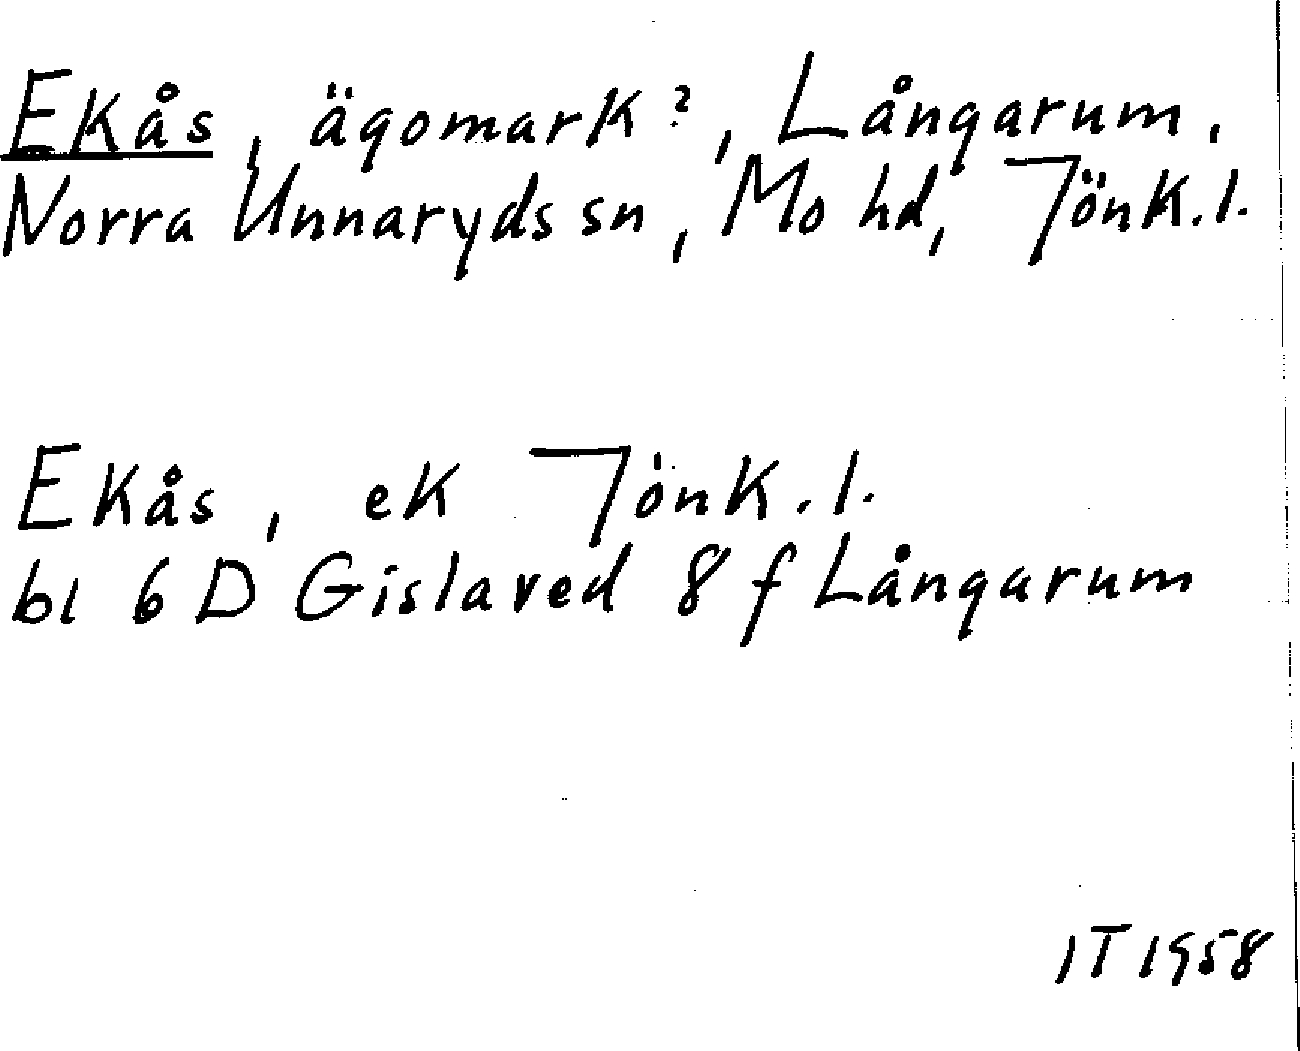 Ekås, ägomark?, Långarum,
Norra Unnaryds sn, Mo hd, Jönk.l.
Ekås, ek Jönk.l.
bl 6 D Gislaved 8 f Långarum
IT 1958